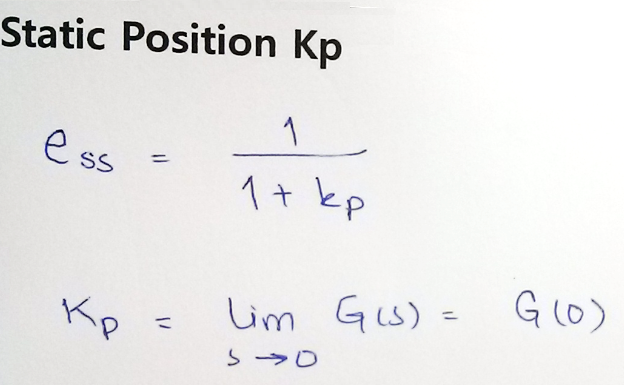 Static Position Kp
e ss = 1 / 1 + kp
Kp = lim s→0 G(s) = G(0)